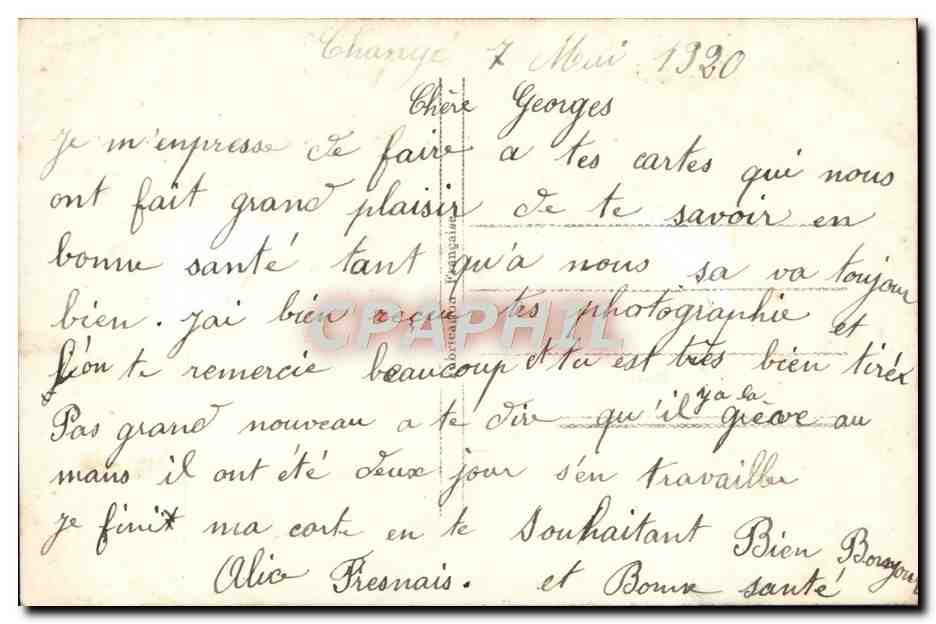 Changé 7 Mai 1920
Chère Georges
Je m'enpresse de faire a tes cartes qui nous
ont fait grand plaisir de te savoir en
bonne santé tant qu'a nous sa va toujour
bien. jai bien reçue tes photographie et
l'on te remercie beaucoup et tu est très bien tirée
Pas grand nouveau a te dire qu'il y a la grève au
mans il ont été deux jour s'en travailler
je finit ma carte en te souhaitant Bien Bonjour
Alice Fresnais. et Bonne santé
Fabrication Française
CPAPHIL